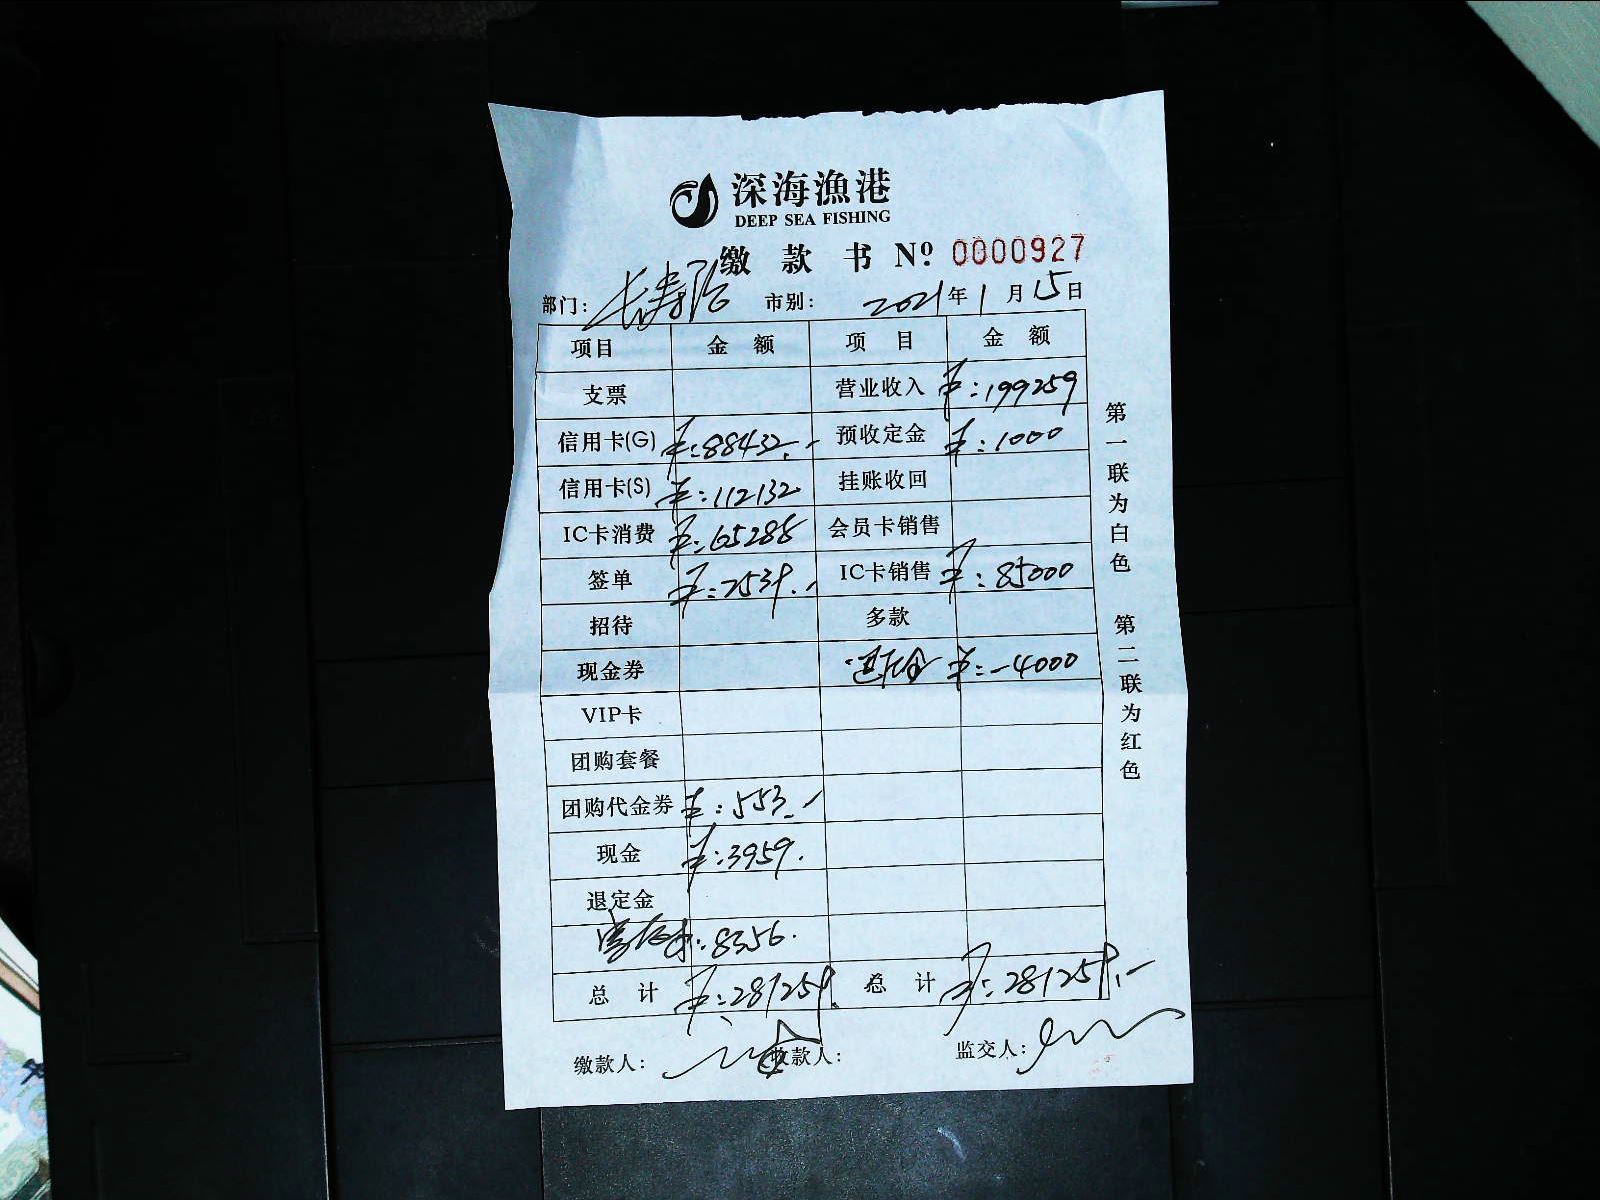 深海漁港
DEEP SEA FISHING
缴款书 Nº 0000927
部门：长寿路 市别： 2021年1月15日
项目 金额 项目 金额
支票 营业收入 ¥:199259
信用卡(G) ¥:88432.- 预收定金 ¥:1000
信用卡(S) ¥:112132 挂账收回
IC卡消费 ¥:65288 会员卡销售
签单 ¥:2539.- IC卡销售 ¥:85000
招待 多款
现金券 退定金 ¥:-4000
VIP卡
团购套餐
团购代金券 ¥:553.-
现金 ¥:3959.
退定金
:8356.
总计 ¥:281259. 总计 ¥:281259.-
缴款人： 收款人： 监交人：
第一联为白色 第二联为红色